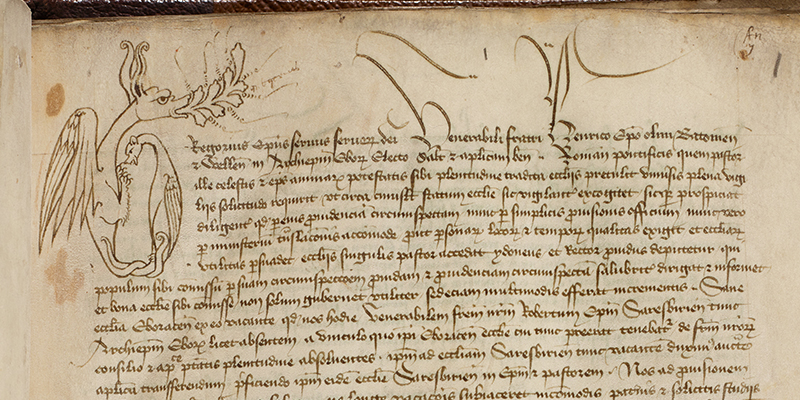 Gregorius Ep̄us seruus seruor̄ dei Venerabili fratri Henrico Ep̄o olim Bathonien̄
& Wellen̄ in Archiep̄m Ebor̄ Electo Salt̄ & aplicam ben̄ Romani pontificis quem pastor
ille celestis & ep̄s animar̄ potestatis sibi plenitudine tradita ecclijs pretulit vniuersis plena vigi
lijs solicitudo requirit vt circa cuiuslibet statum ecclie sic vigilanter excogitet sicqʒ prospiciat
diligenter qd̄ per eius prudencia circumspectam nunc per simplicis prouisionis officium nunc vero
per ministerium translacionis accomode prout personar̄ locor̄ & temporum qualitas exigit et eccliar̄
vtilitas persuadet ecclijs singulis pastor accedat ydoneus et Rector prouidus deputetur qui
populum sibi commissum per suam circumspeccōem prouidam & prouidenciam circumspectam salubriter dirigat & informet
et bona ecclie sibi commisse non solum gubernet vtiliter sed eciam multimodis efferat incrementis Sane
ecclia Eboracen̄ ex eo vacante qd̄ nos hodie Venerabilem frem̄ nrm̄ Robertum Ep̄m Saresbirien̄ tunc
Archiep̄m Ebor̄ licet absentem a vinculo quo ip̄i Eboracen̄ ecclie cui tunc preerat tenebatur de frm̄ nror̄
consilio & aplice ptatis plenitudine absoluentes ip̄m ad eccliam Saresbirien̄ tunc vacantem duximus aucte
aplica transferendum preficiendo ip̄m eidem ecclie Saresbirien̄ in Ep̄m & pastorem Nos ad prouisionem
vacacōis subiaceret incomodis paternis & solicitis studijs